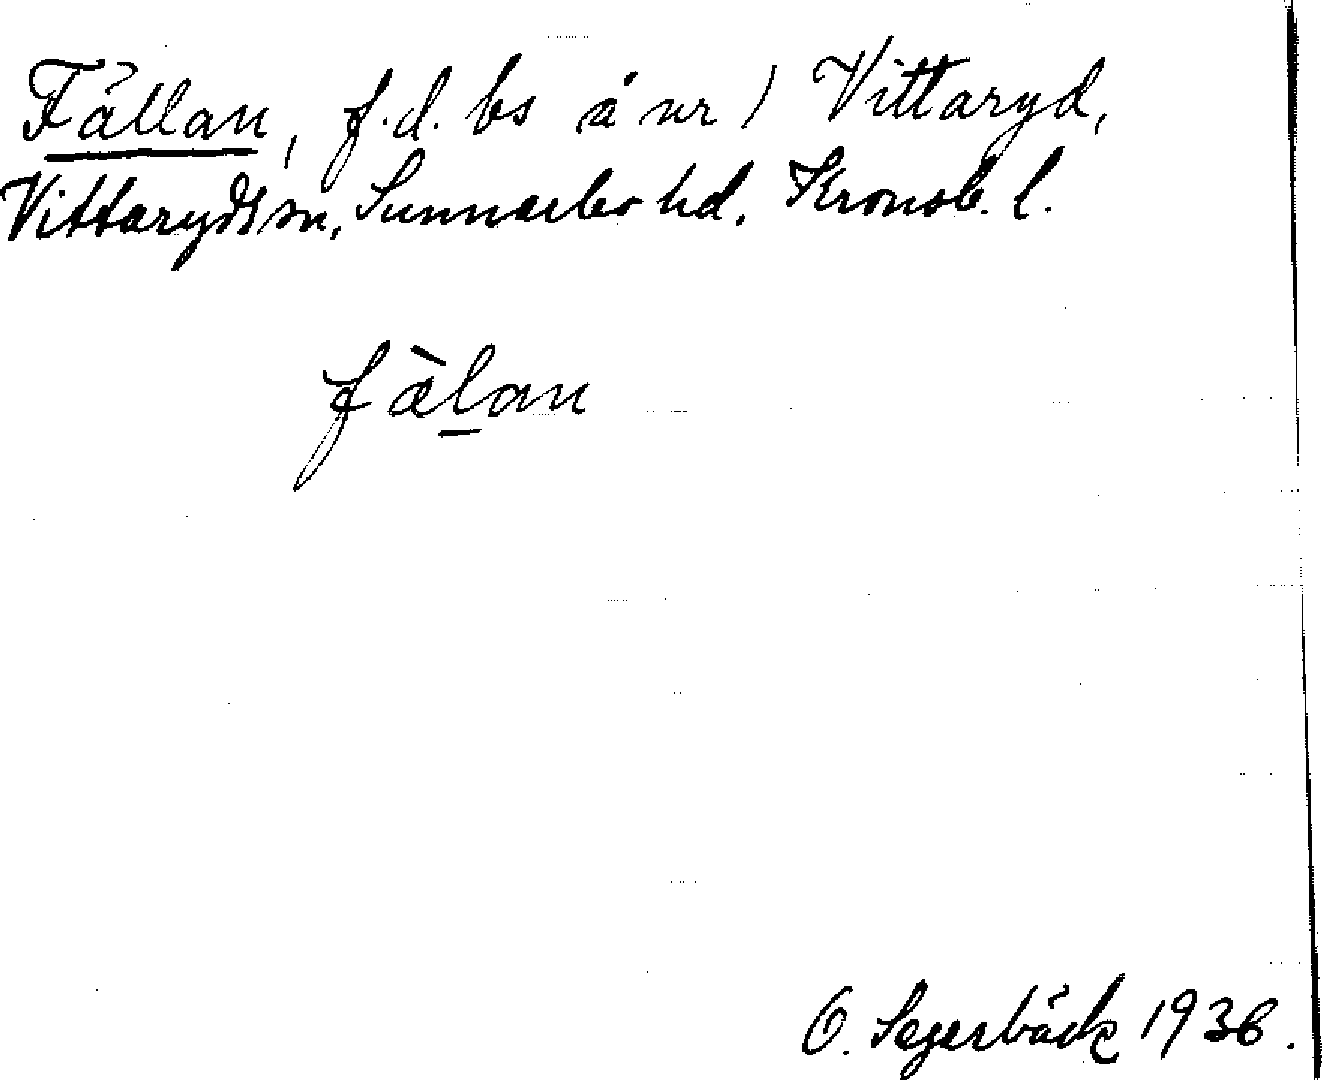 Fällan, f.d. bs å nr 1 Vittaryd,
Vittaryds sn, Sunnerbo hd. Kronob. l.
fä̀l̠an
O. Segerbäck 1936.